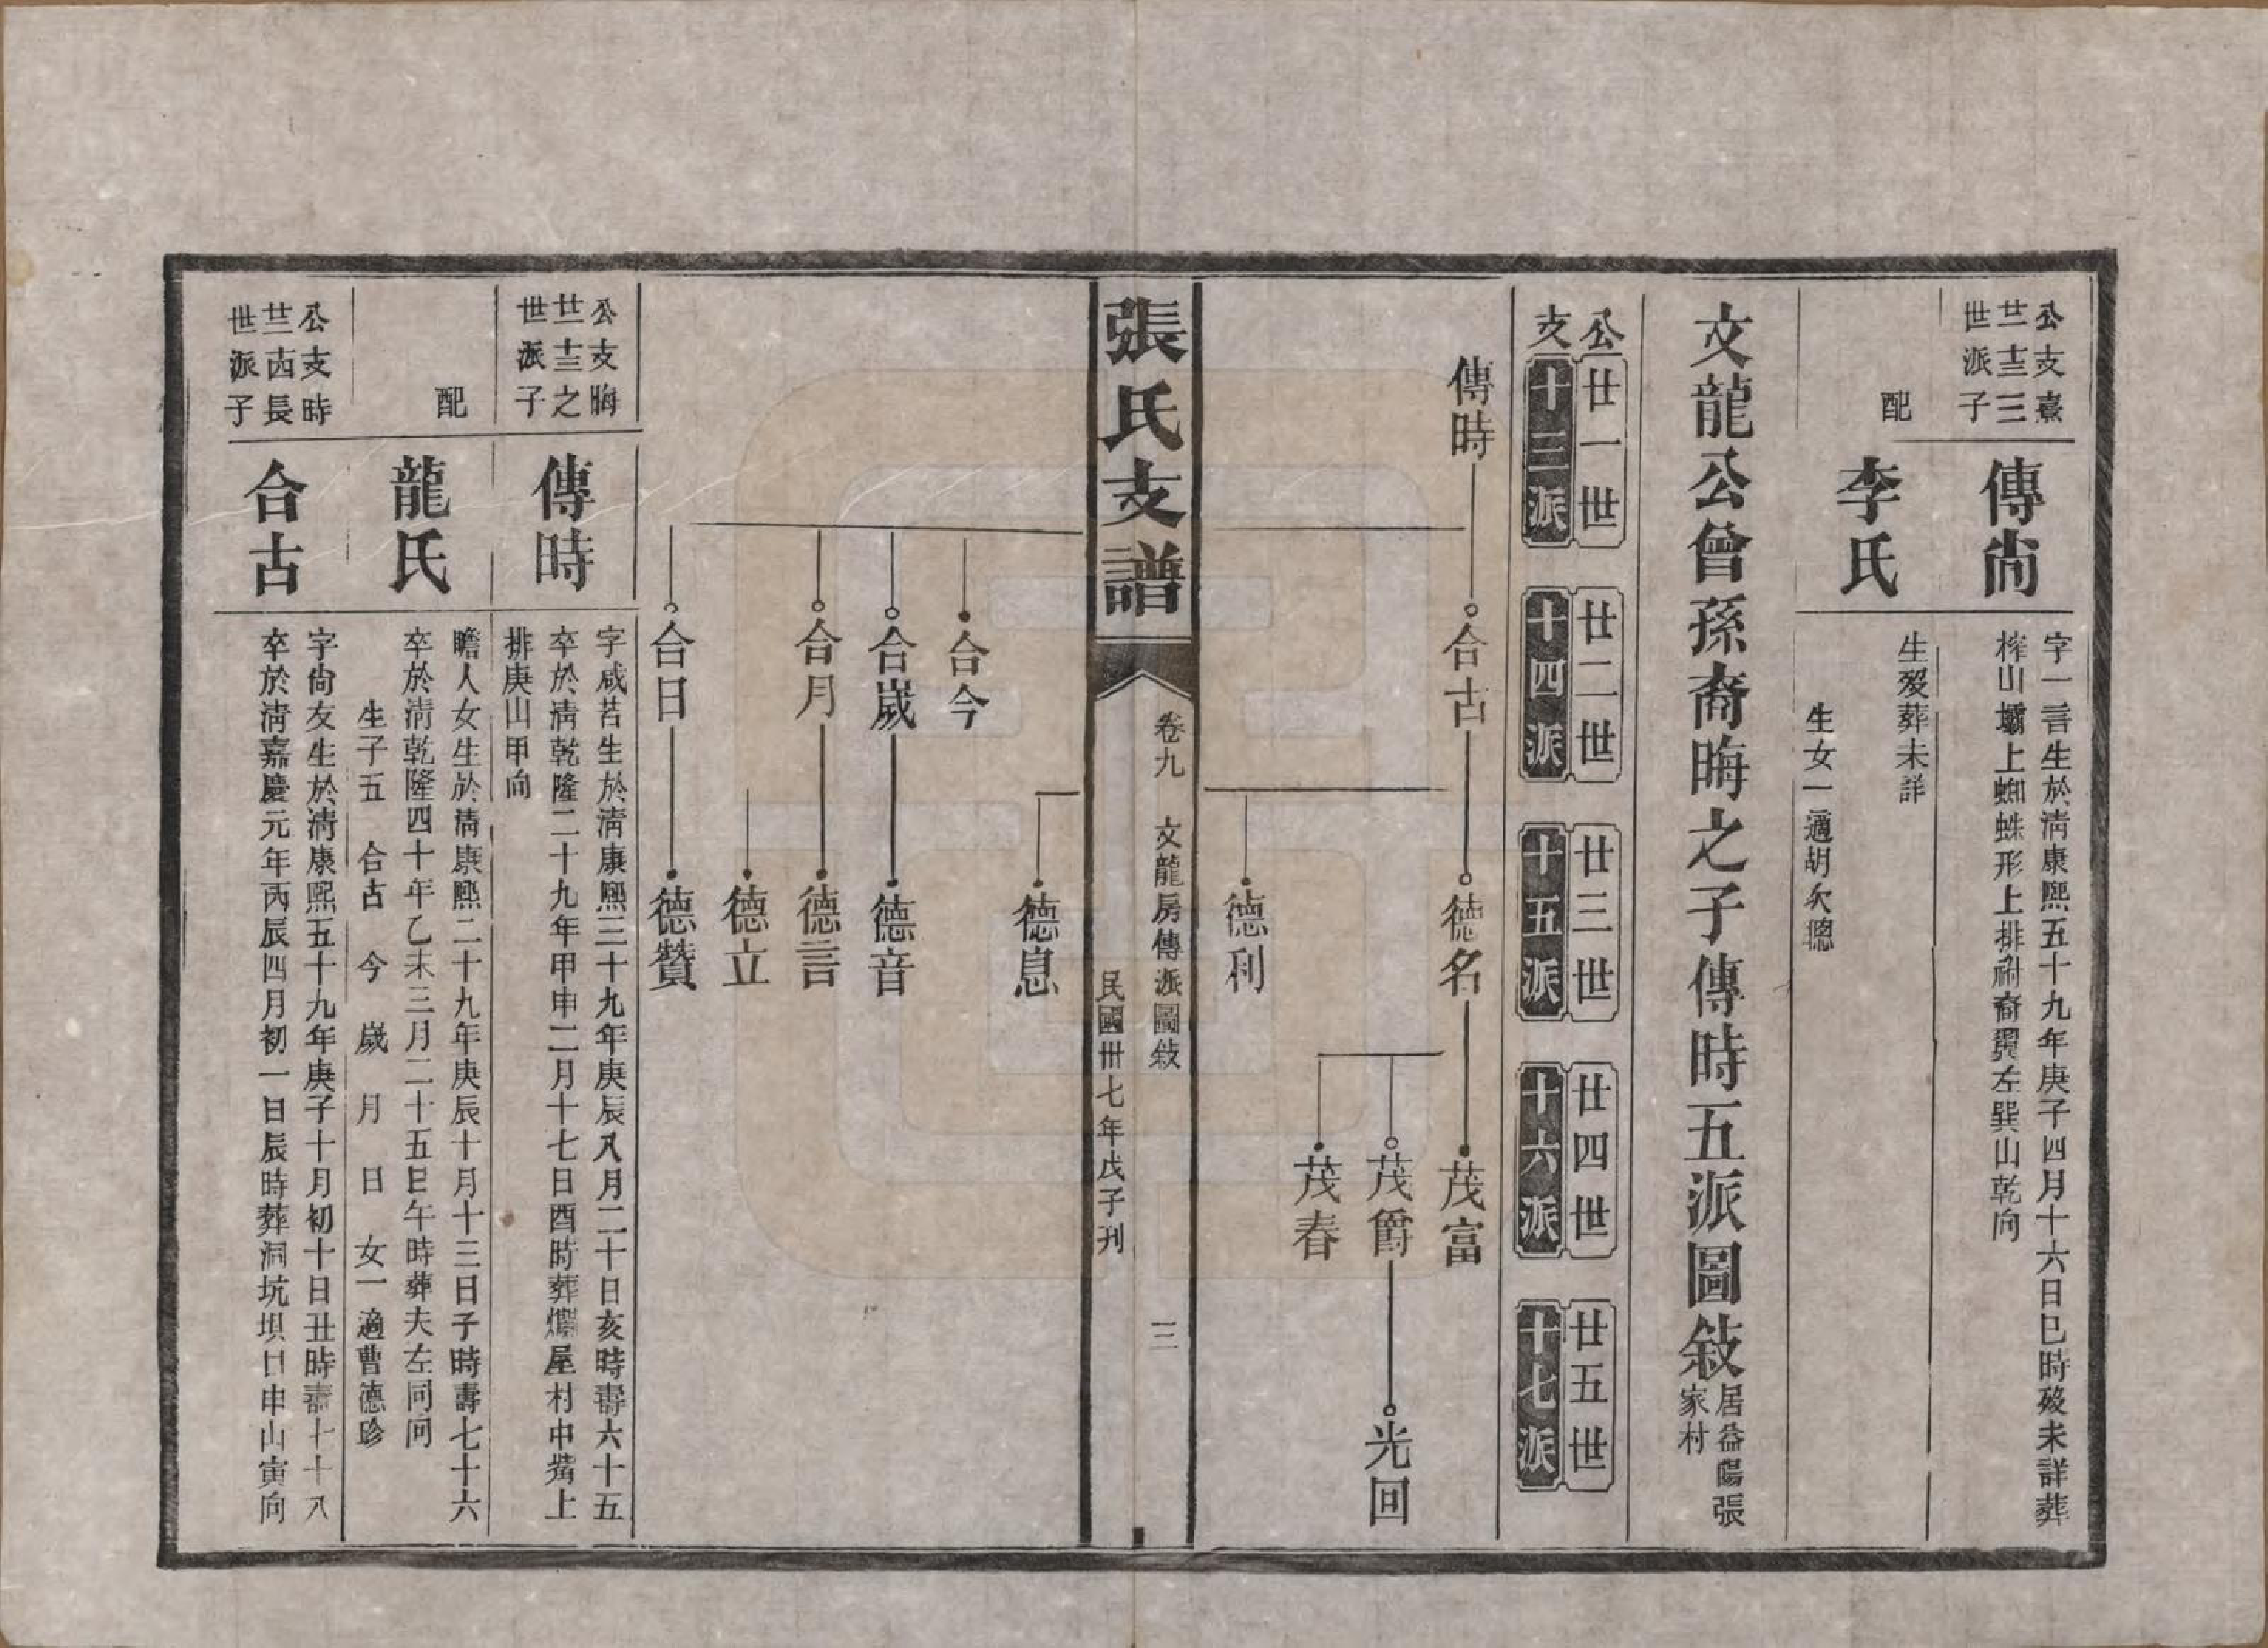 公支熹
廿十三三
世派子
傳尙
字一言生於淸康熙五十九年庚子四月十六日巳時歿未詳葬
榨山壩上蜘蛛形上排祔裔翼左巽山乾向
配
李氏
生歿葬未詳
生女一適胡永聰
文龍公曾孫裔晦之子傳時五派圖敍
居益陽張
家村
公
支
廿一世
十三派
廿二世
十四派
廿三世
十五派
廿四世
十六派
廿五世
十七派
傳時
合古
德名
茂富
茂爵
光回
茂春
德利
張氏支譜
卷九
文龍房傳派圖敍
三
民國卅七年戊子刊
德息
合今
合嵗
德音
合月
德言
德立
合日
德贊
公支晦
廿十三之
世派子
傳時
字咸若生於淸康熙三十九年庚辰八月二十日亥時壽六十五
卒於淸乾隆二十九年甲申二月十七日酉時葬爛屋村中嘴上
排庚山甲向
配
龍氏
瞻人女生於淸康熙二十九年庚辰十月十三日子時壽七十六
卒於淸乾隆四十年乙未三月二十五日午時葬夫左同向
生子五 合古 今 嵗 月 日 女一適曹德珍
公支時
廿二十四長
世派子
合古
字尙友生於淸康熙五十九年庚子十月初十日丑時壽七十八
卒於淸嘉慶元年丙辰四月初一日辰時葬洞坑垻口申山寅向